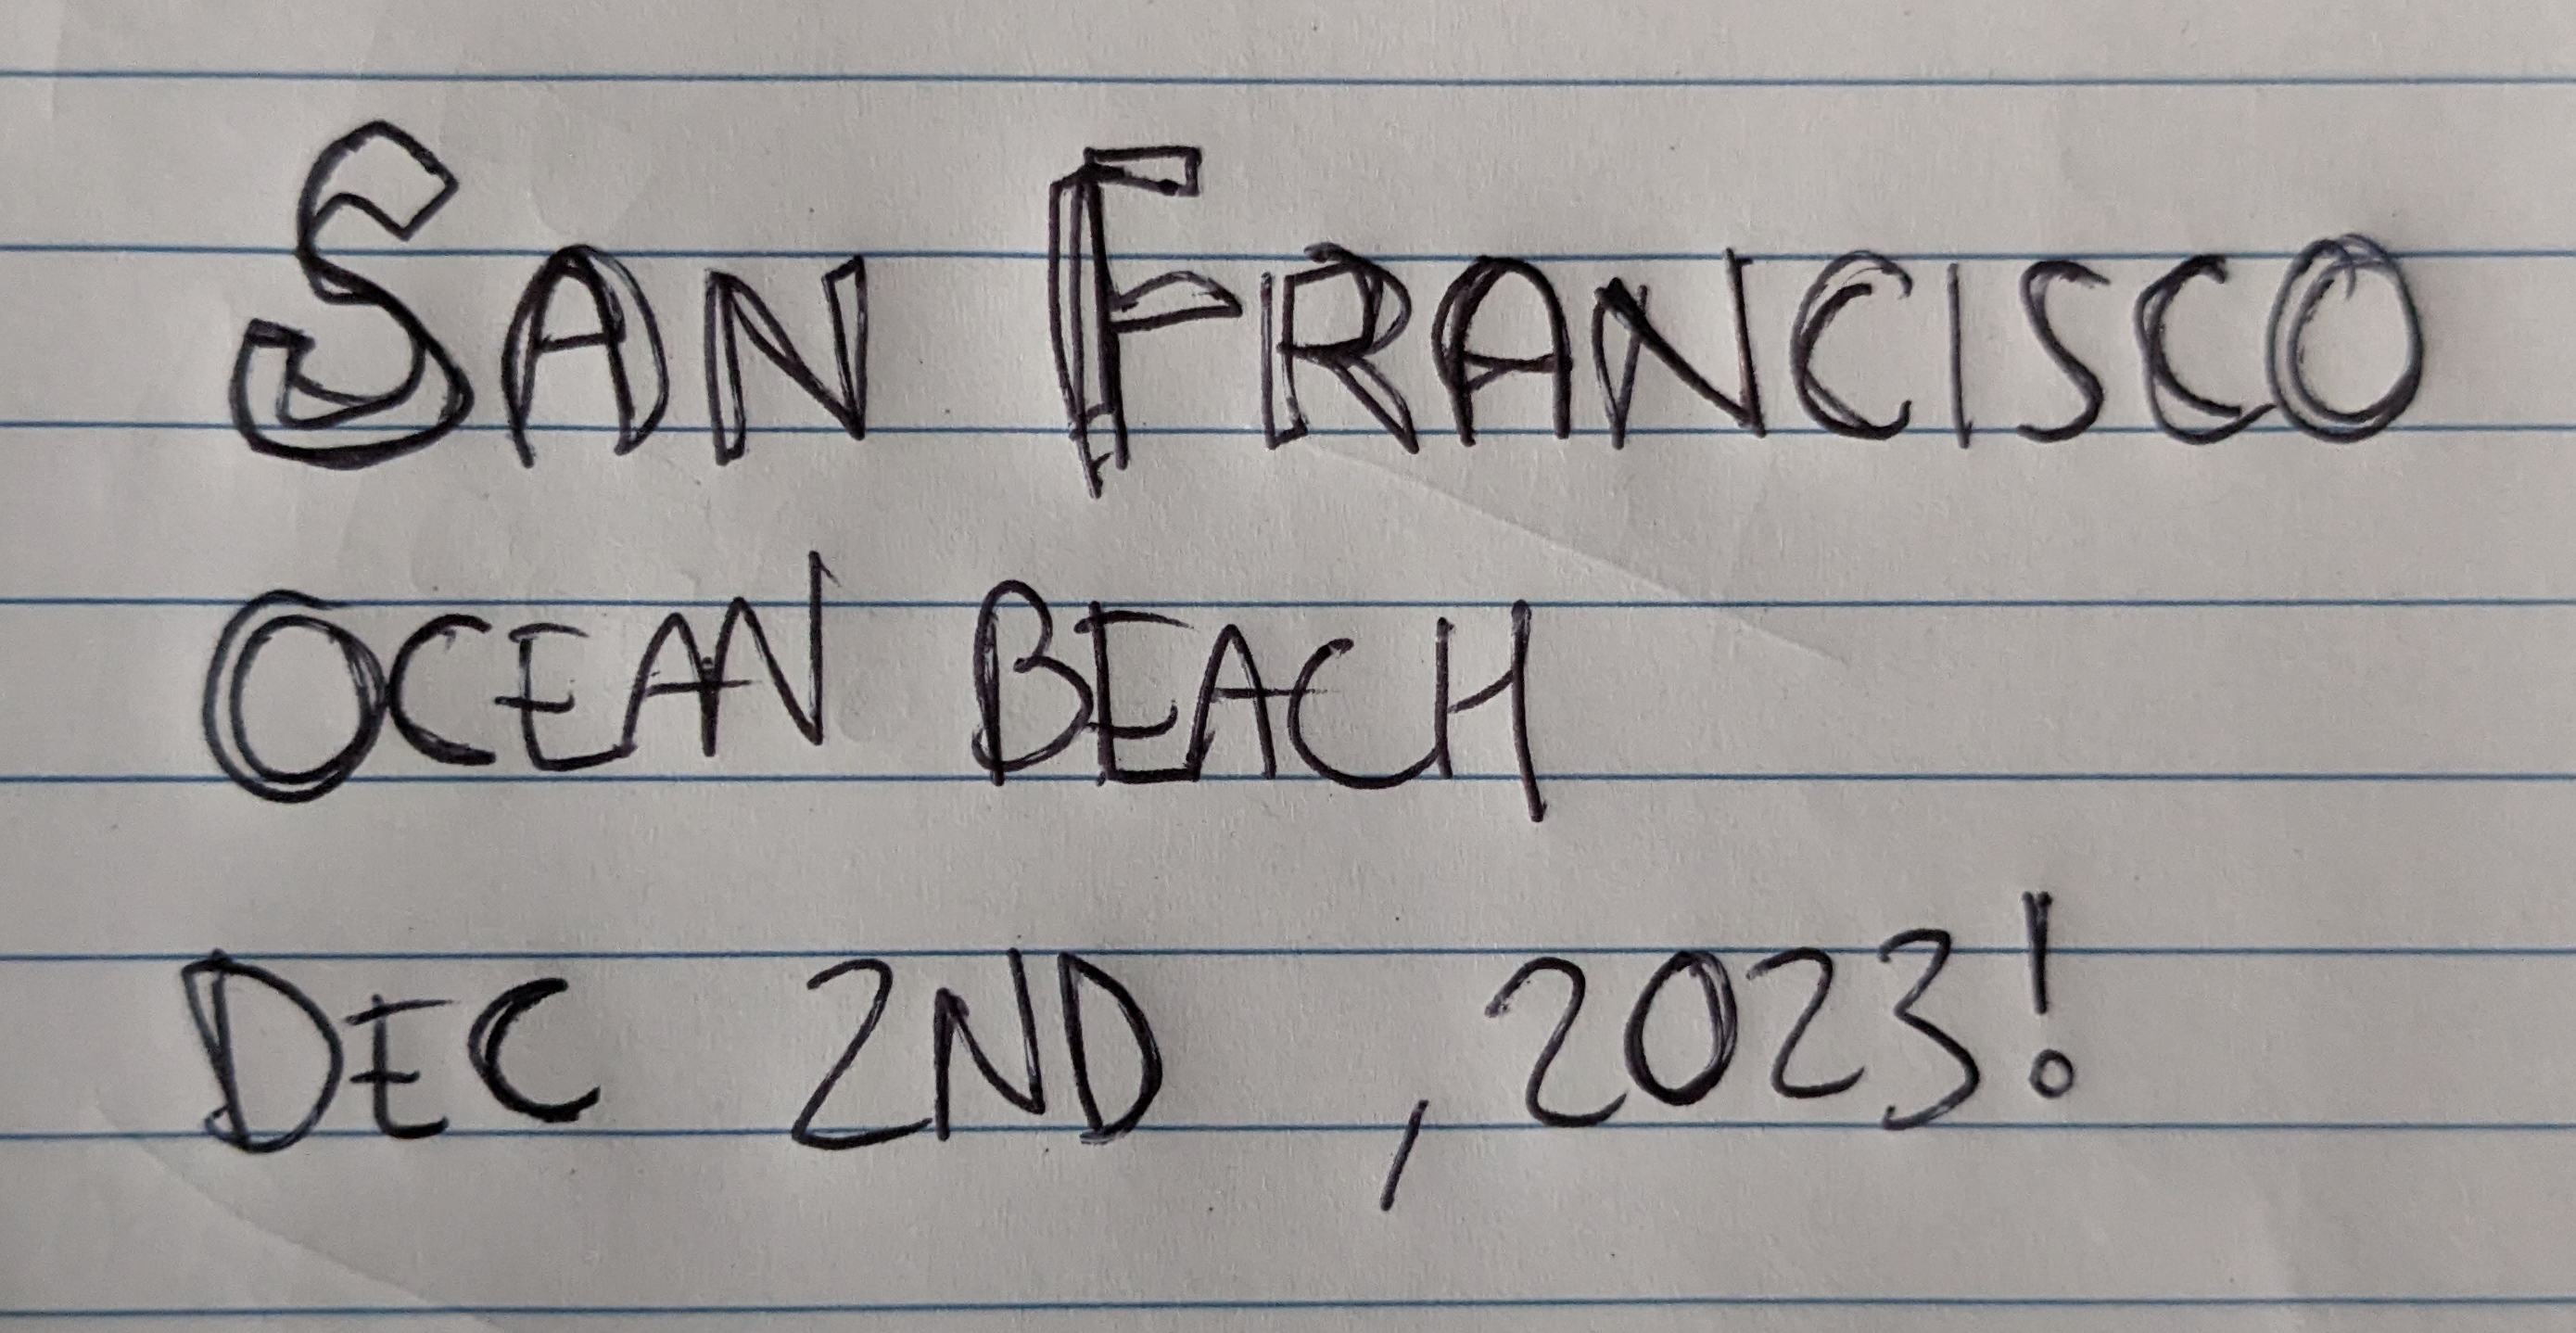 SAN FRANCISCO
OCEAN BEACH
DEC 2ND , 2023!